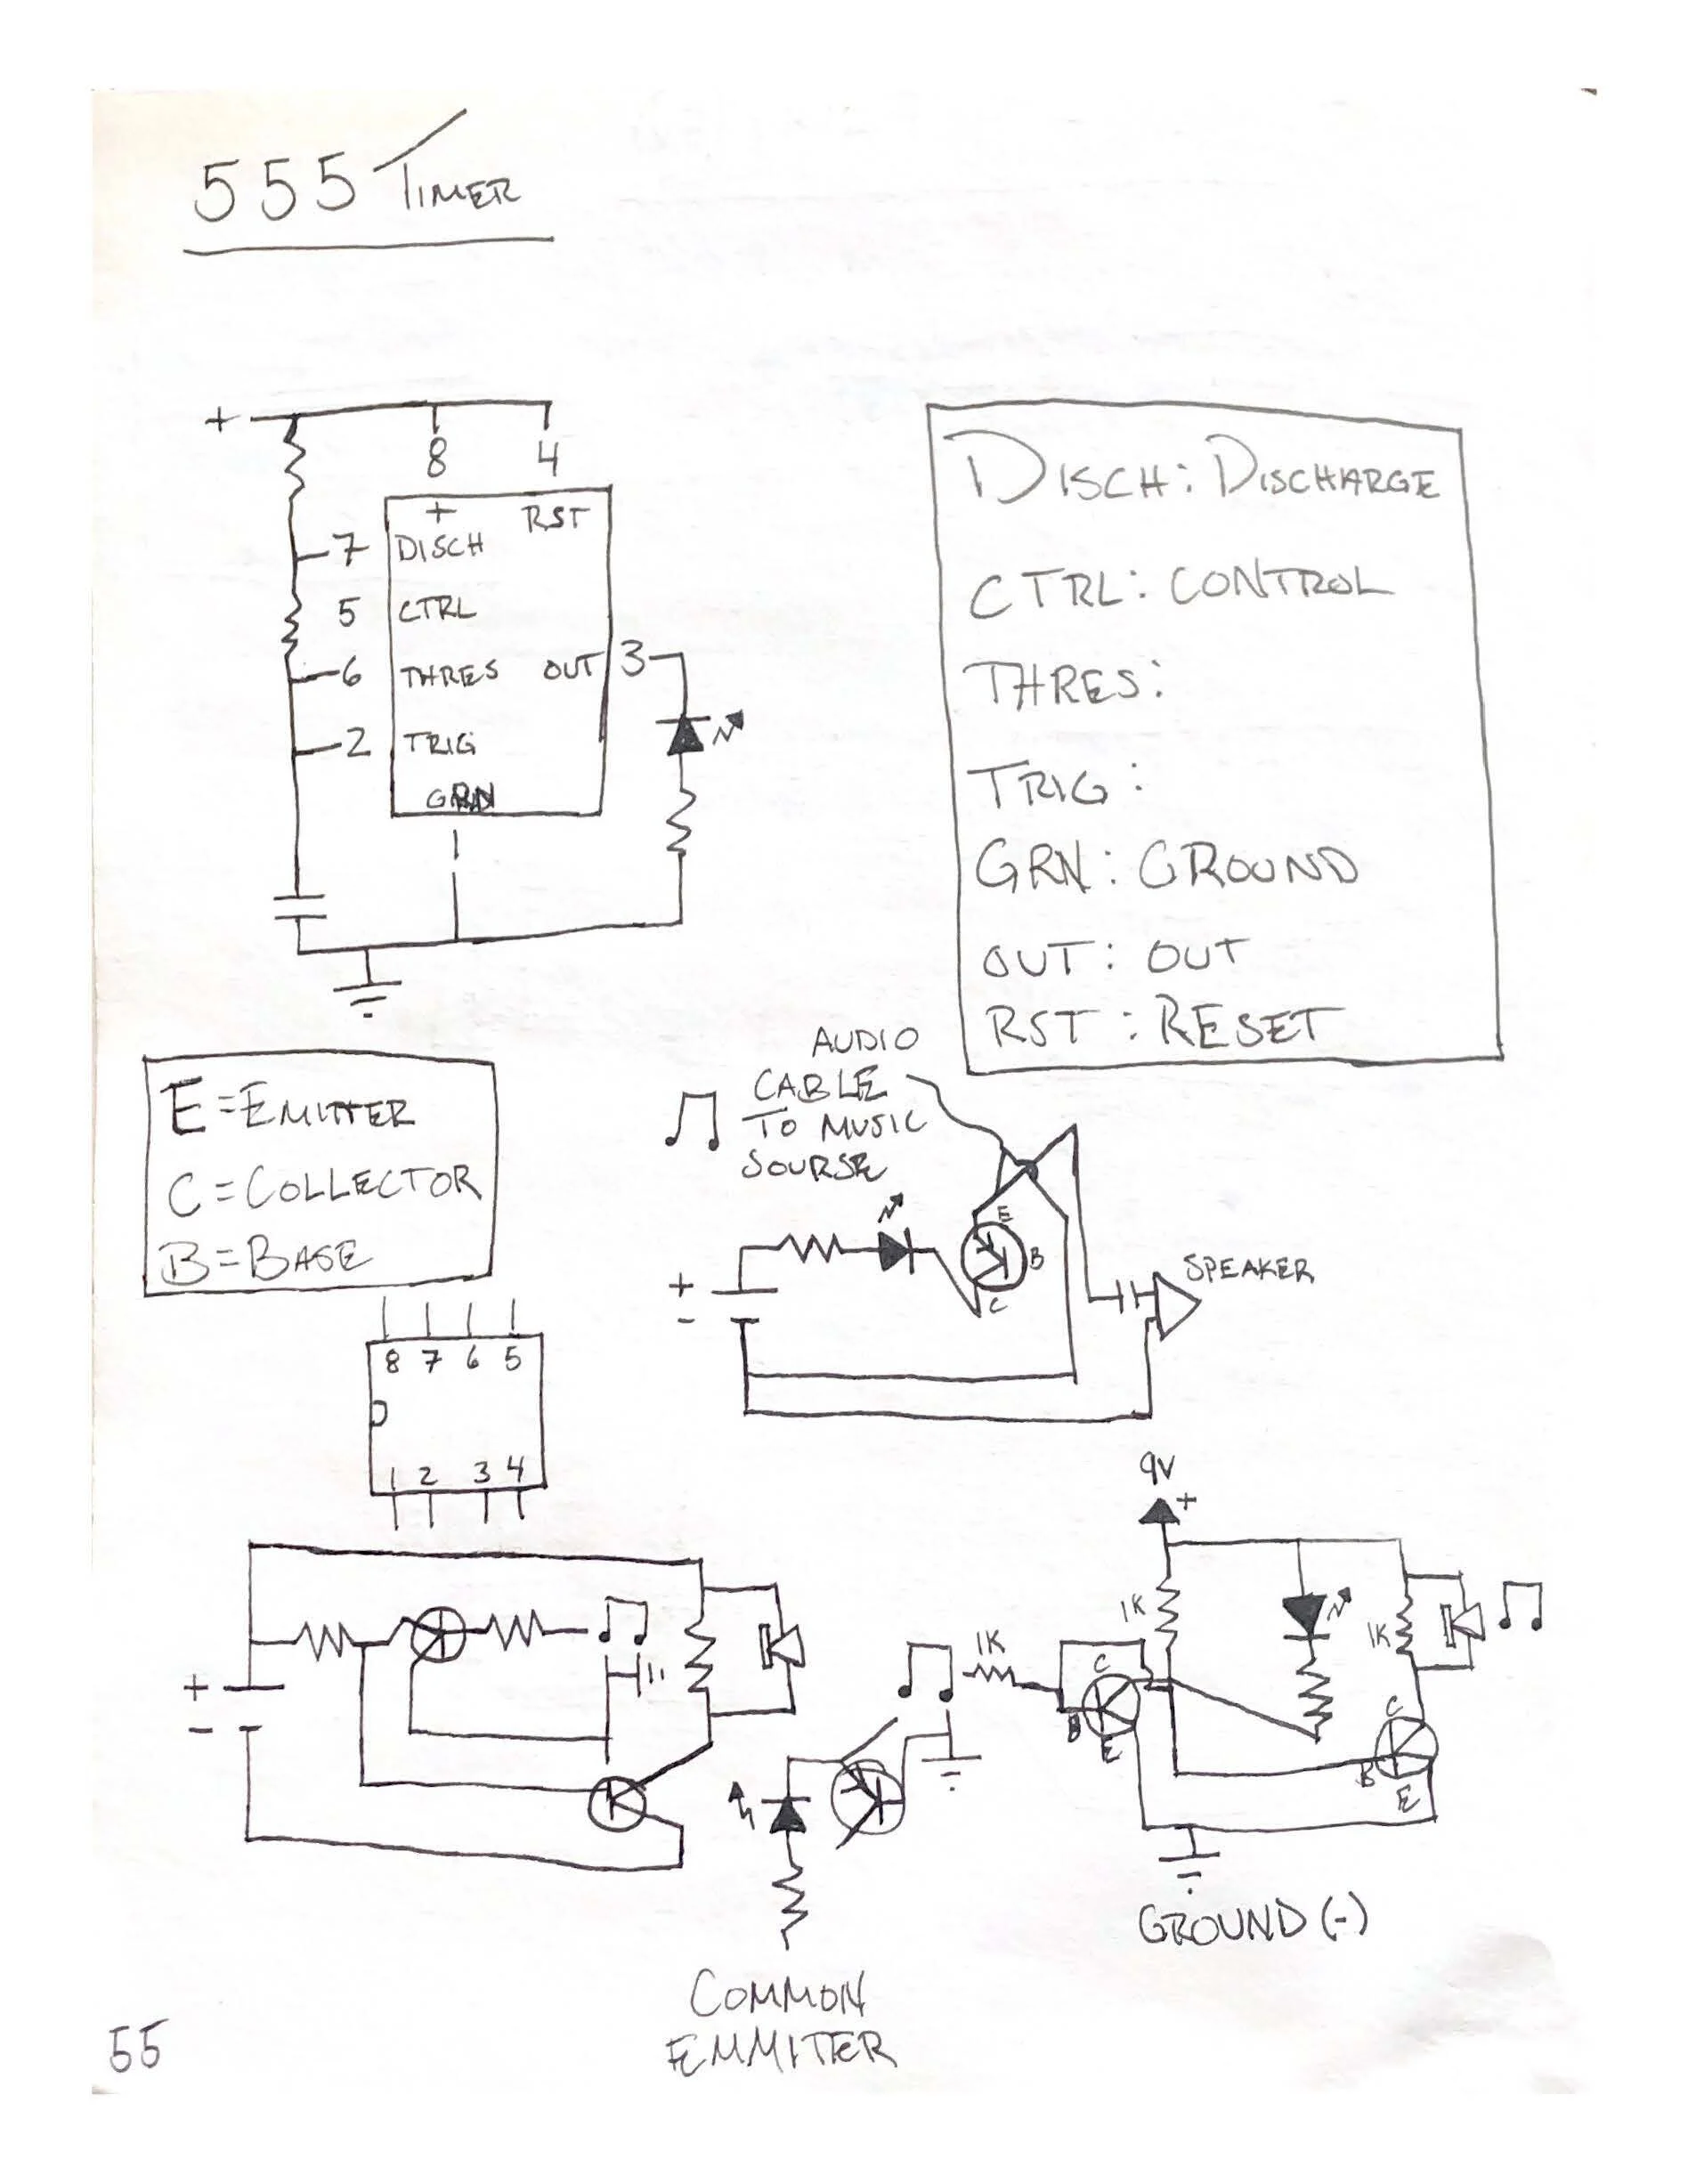 555 TIMER
+
8 4
+ RST
7 DISCH
5 CTRL
6 THRES OUT 3
2 TRIG
GRN
1
DISCH: DISCHARGE
CTRL: CONTROL
THRES:
TRIG:
GRN: GROUND
OUT: OUT
RST: RESET
E=EMITTER
C=COLLECTOR
B=BASE
AUDIO
CABLE
TO MUSIC
SOURSE
E
B
C
+
-
SPEAKER
8 7 6 5
1 2 3 4
+
-
COMMON
EMMITER
9V
+
1K
1K
1K
C
B
E
C
B
E
GROUND (-)
55